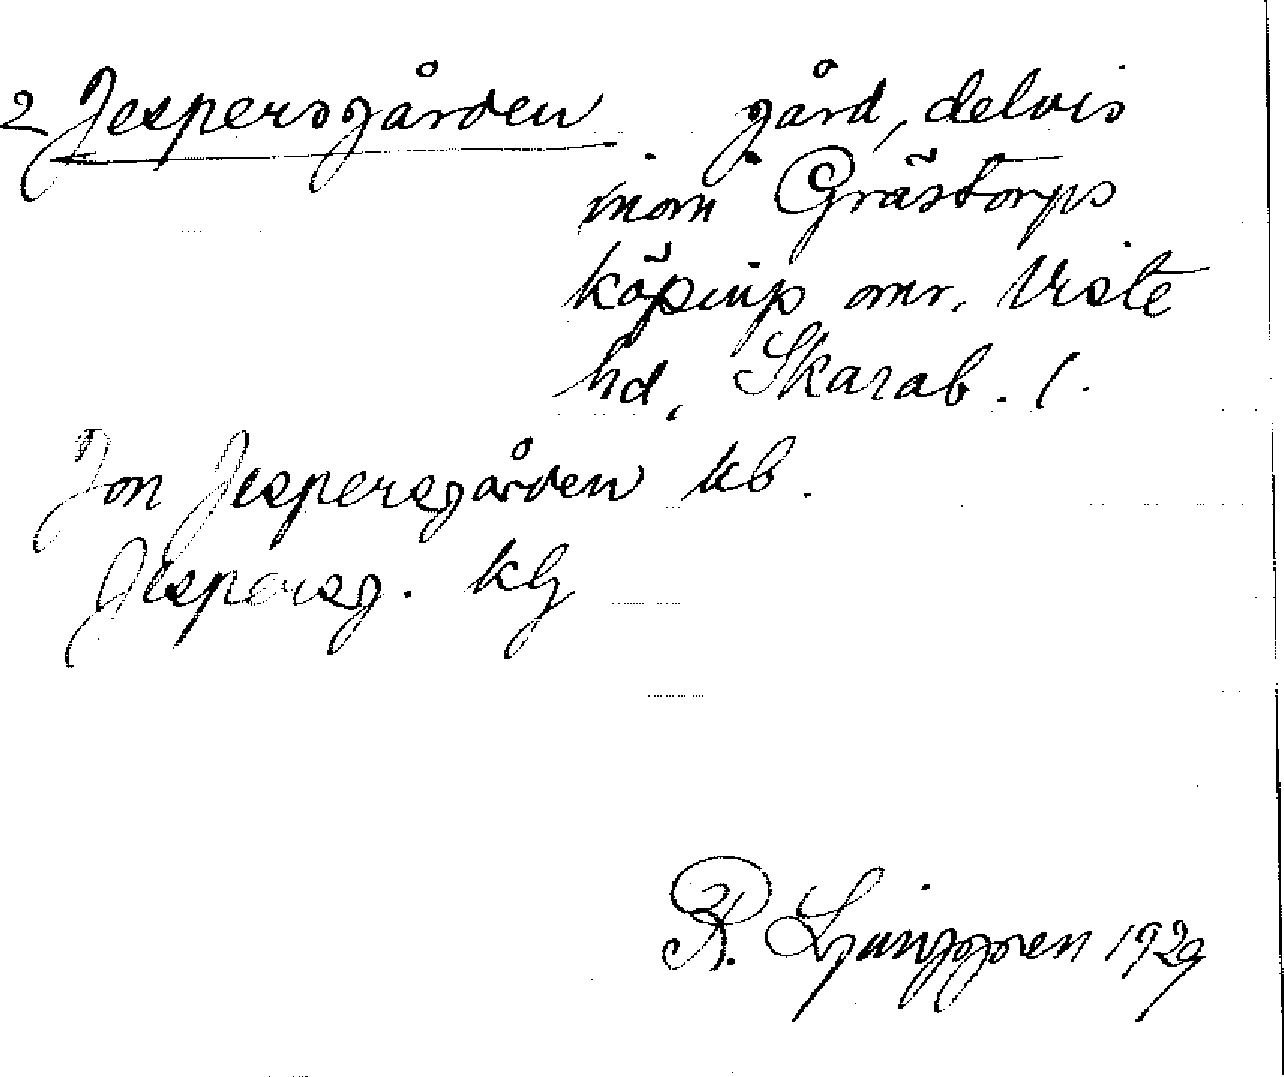 2 Jespersgården gård, delvis
inom Grästorps
köpings omr. Viste
hd, Skarab. l.
Jon Jespersgården kb.
Jespersg. kG
R. Ljunggren 1929